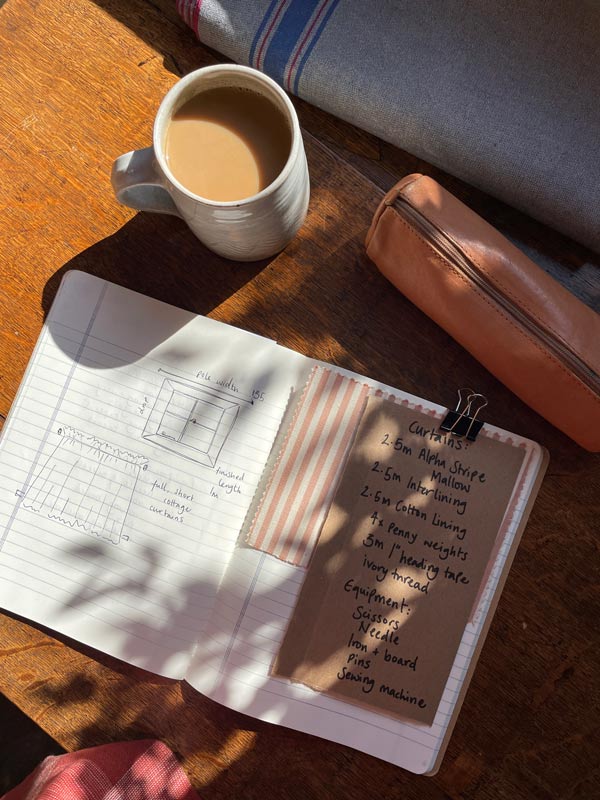 pole width
155
finished
length
1m
full, short
cottage
curtains
Curtains:
2.5m Alpha Stripe
Mallow
2.5m Interlining
2.5m Cotton Lining
4x Penny weights
3m 1" heading tape
ivory thread
Equipment:
Scissors
Needle
Iron + board
Pins
Sewing machine